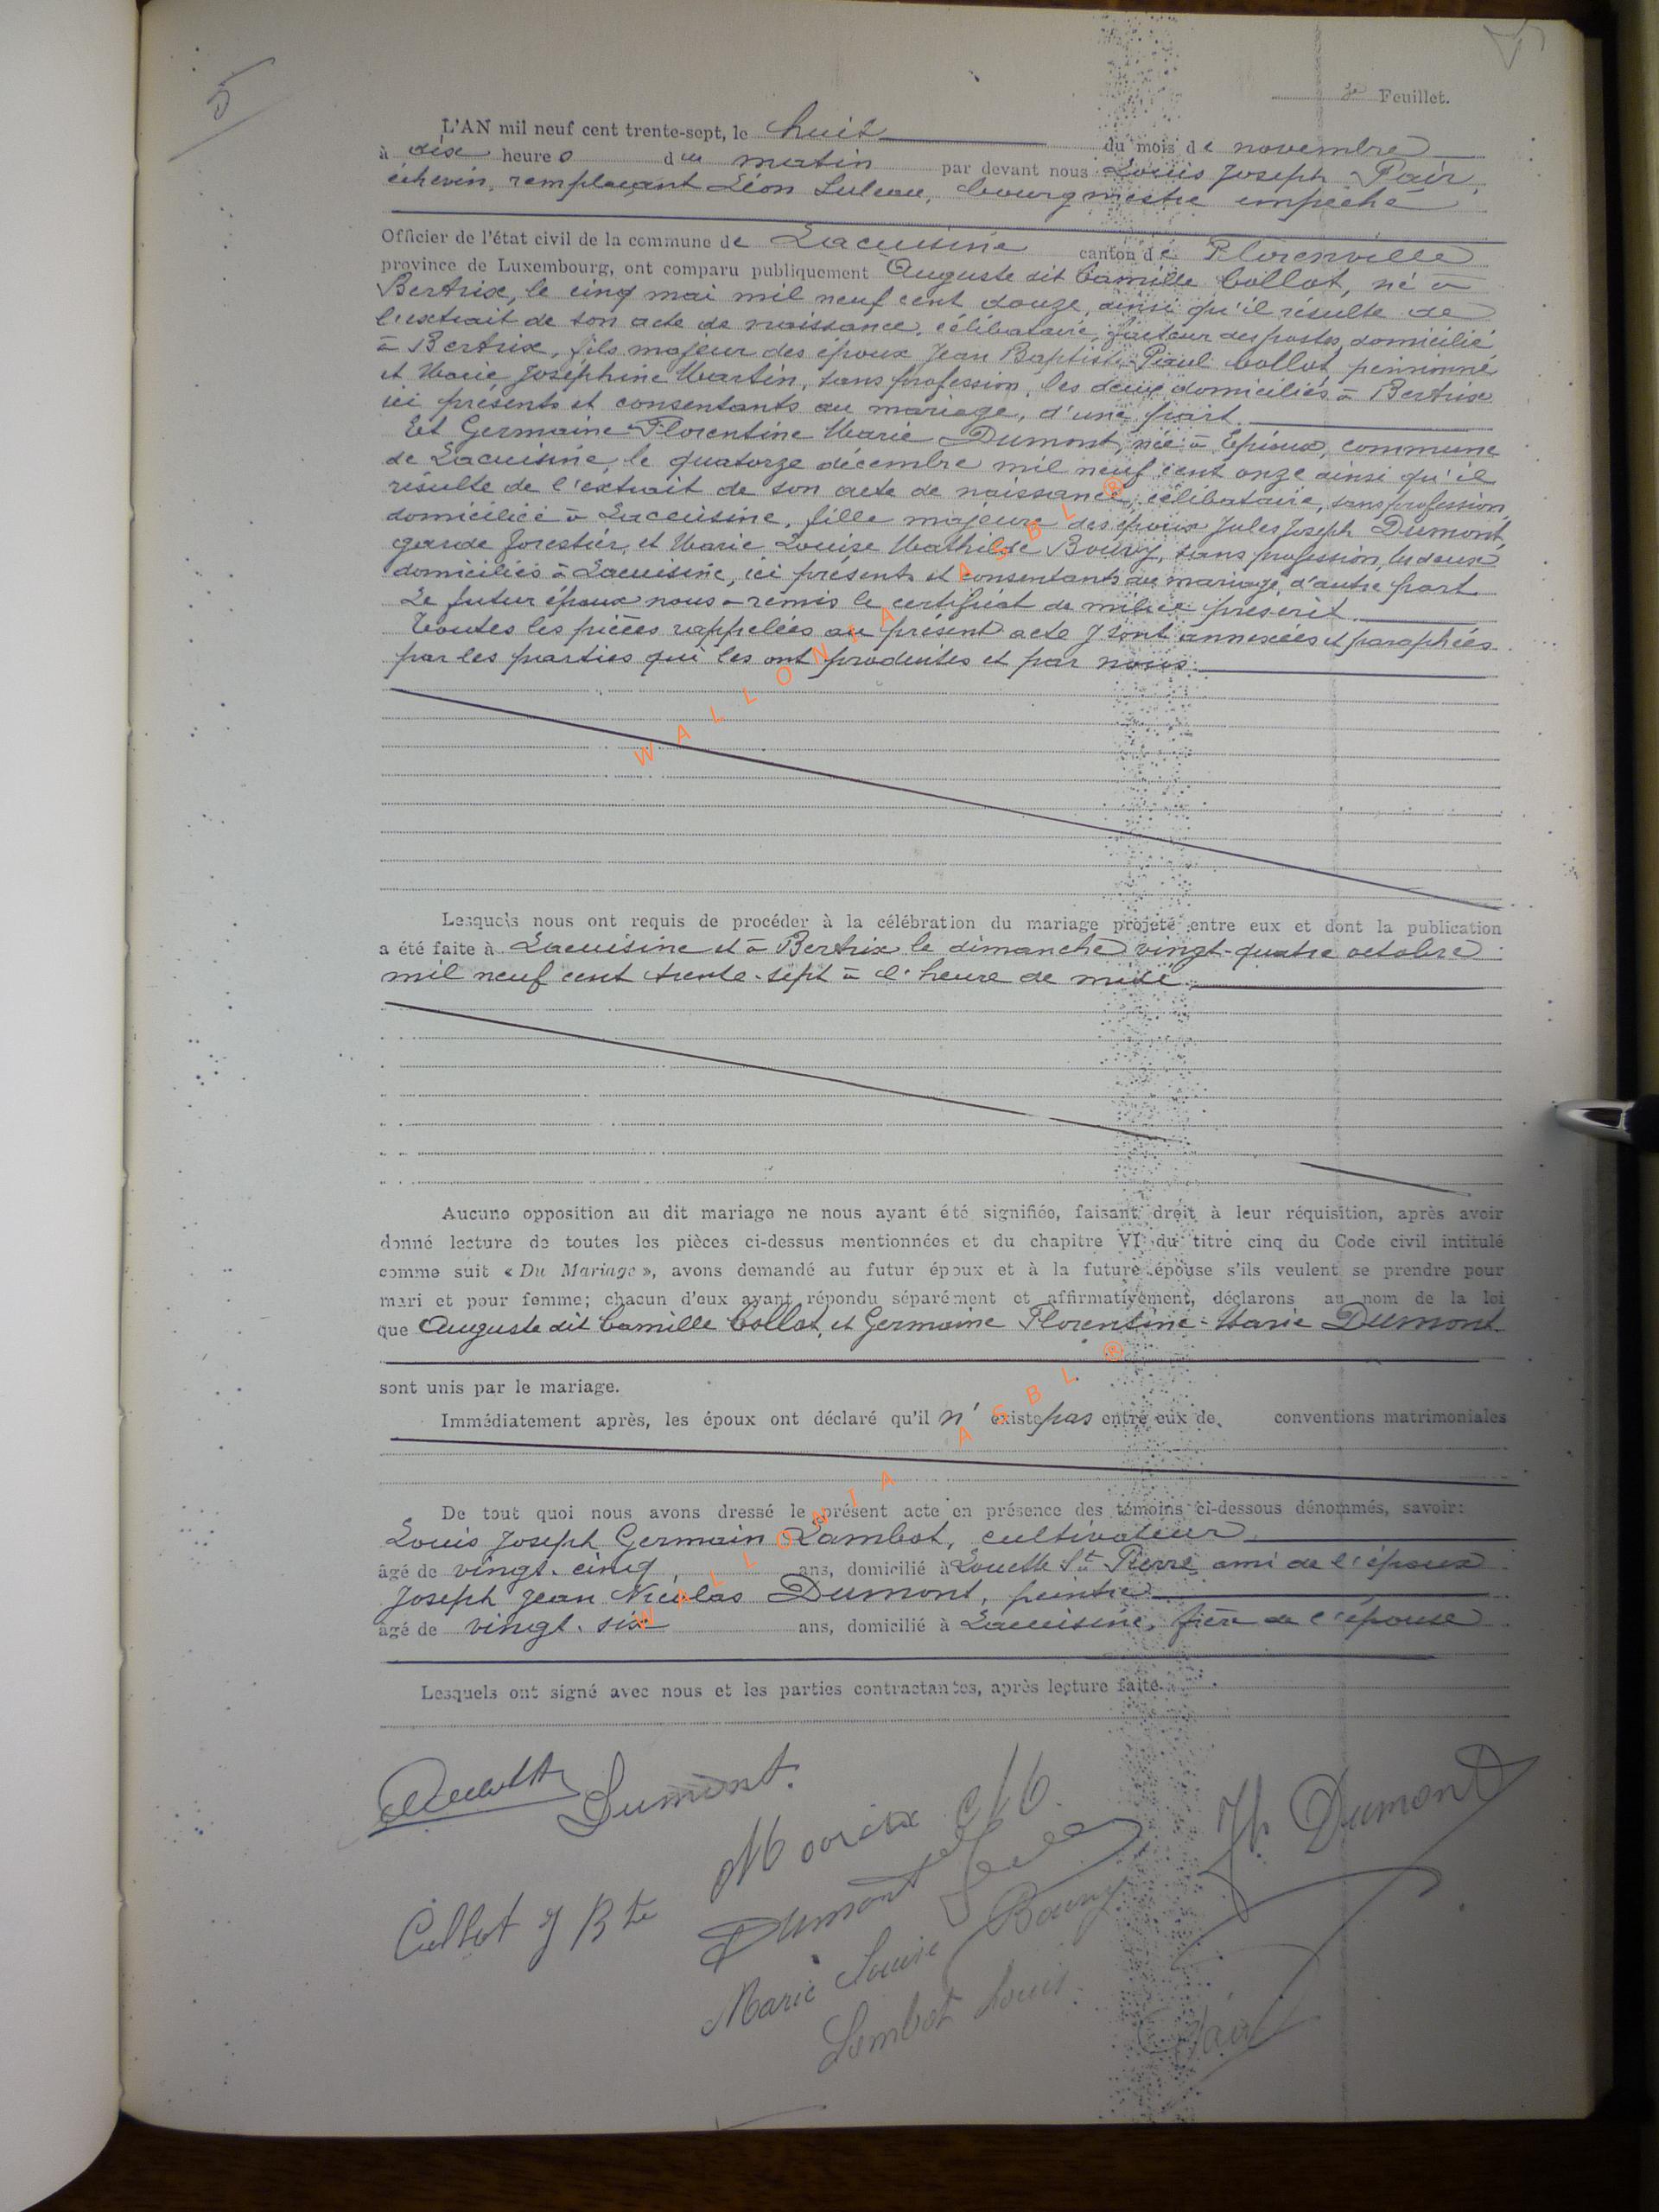 5
3e Feuillet.
L'AN mil neuf cent trente-sept, le huit du mois de novembre
à dix heures du matin par devant nous Louis Joseph Pair,
échevin, remplaçant Léon Luleau, bourgmestre empêché
Officier de l'état civil de la commune de Lacuisine canton de Florenville
province de Luxembourg, ont comparu publiquement Auguste dit Camille Collot, né à
Bertrix, le cinq mai mil neuf cent douze, ainsi qu'il résulte de
l'extrait de son acte de naissance, célibataire, facteur des postes, domicilié
à Bertrix, fils majeur des époux Jean Baptiste Paul Collot, pensionné
et Marie Joséphine Martin, sans profession, les deux domiciliés à Bertrix
ici présents et consentants au mariage, d'une part.
Et Germaine Florentine Marie Dumont, née à Epioux, commune
de Lacuisine, le quatorze décembre mil neuf cent onze ainsi qu'il
résulte de l'extrait de son acte de naissance, célibataire, sans profession,
domiciliée à Lacuisine, fille majeure des époux Jules Joseph Dumont,
garde forestier, et Marie Louise Mathilde Bouvy, sans profession, les deux
domiciliés à Lacuisine, ici présents et consentants au mariage, d'autre part.
Le futur époux nous a remis le certificat de milice prescrit.
Toutes les pièces rappelées au présent acte y sont annexées et paraphées
par les parties qui les ont produites et par nous.
WALLONIA ASBL ®
Lesquels nous ont requis de procéder à la célébration du mariage projeté entre eux et dont la publication
a été faite à Lacuisine et à Bertrix le dimanche vingt-quatre octobre
mil neuf cent trente-sept à l'heure de midi.
Aucune opposition au dit mariage ne nous ayant été signifiée, faisant droit à leur réquisition, après avoir
donné lecture de toutes les pièces ci-dessus mentionnées et du chapitre VI du titre cinq du Code civil intitulé
comme suit « Du Mariage », avons demandé au futur époux et à la future épouse s'ils veulent se prendre pour
mari et pour femme; chacun d'eux ayant répondu séparément et affirmativement, déclarons au nom de la loi
que Auguste dit Camille Collot, et Germaine Florentine Marie Dumont
sont unis par le mariage.
Immédiatement après, les époux ont déclaré qu'il n'existe pas entre eux de conventions matrimoniales
De tout quoi nous avons dressé le présent acte en présence des témoins ci-dessous dénommés, savoir:
Louis Joseph Germain Lambot, cultivateur
âgé de vingt-cinq ans, domicilié à Louette St Pierre, ami de l'époux
Joseph Jean Nicolas Dumont, peintre
âgé de vingt-six ans, domicilié à Lacuisine, frère de l'épouse
WALLONIA ASBL ®
Lesquels ont signé avec nous et les parties contractantes, après lecture faite.
Dumont.
Jh Dumont
Collot J Bte
Dumont Jules
Marie Louise Bouvy
Lambot Louis.
Pair